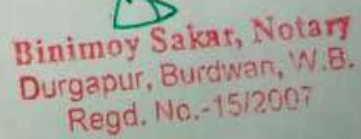 Binimoy Sakar, Notary
Durgapur, Burdwan, W.B.
Regd. No.-15/2007